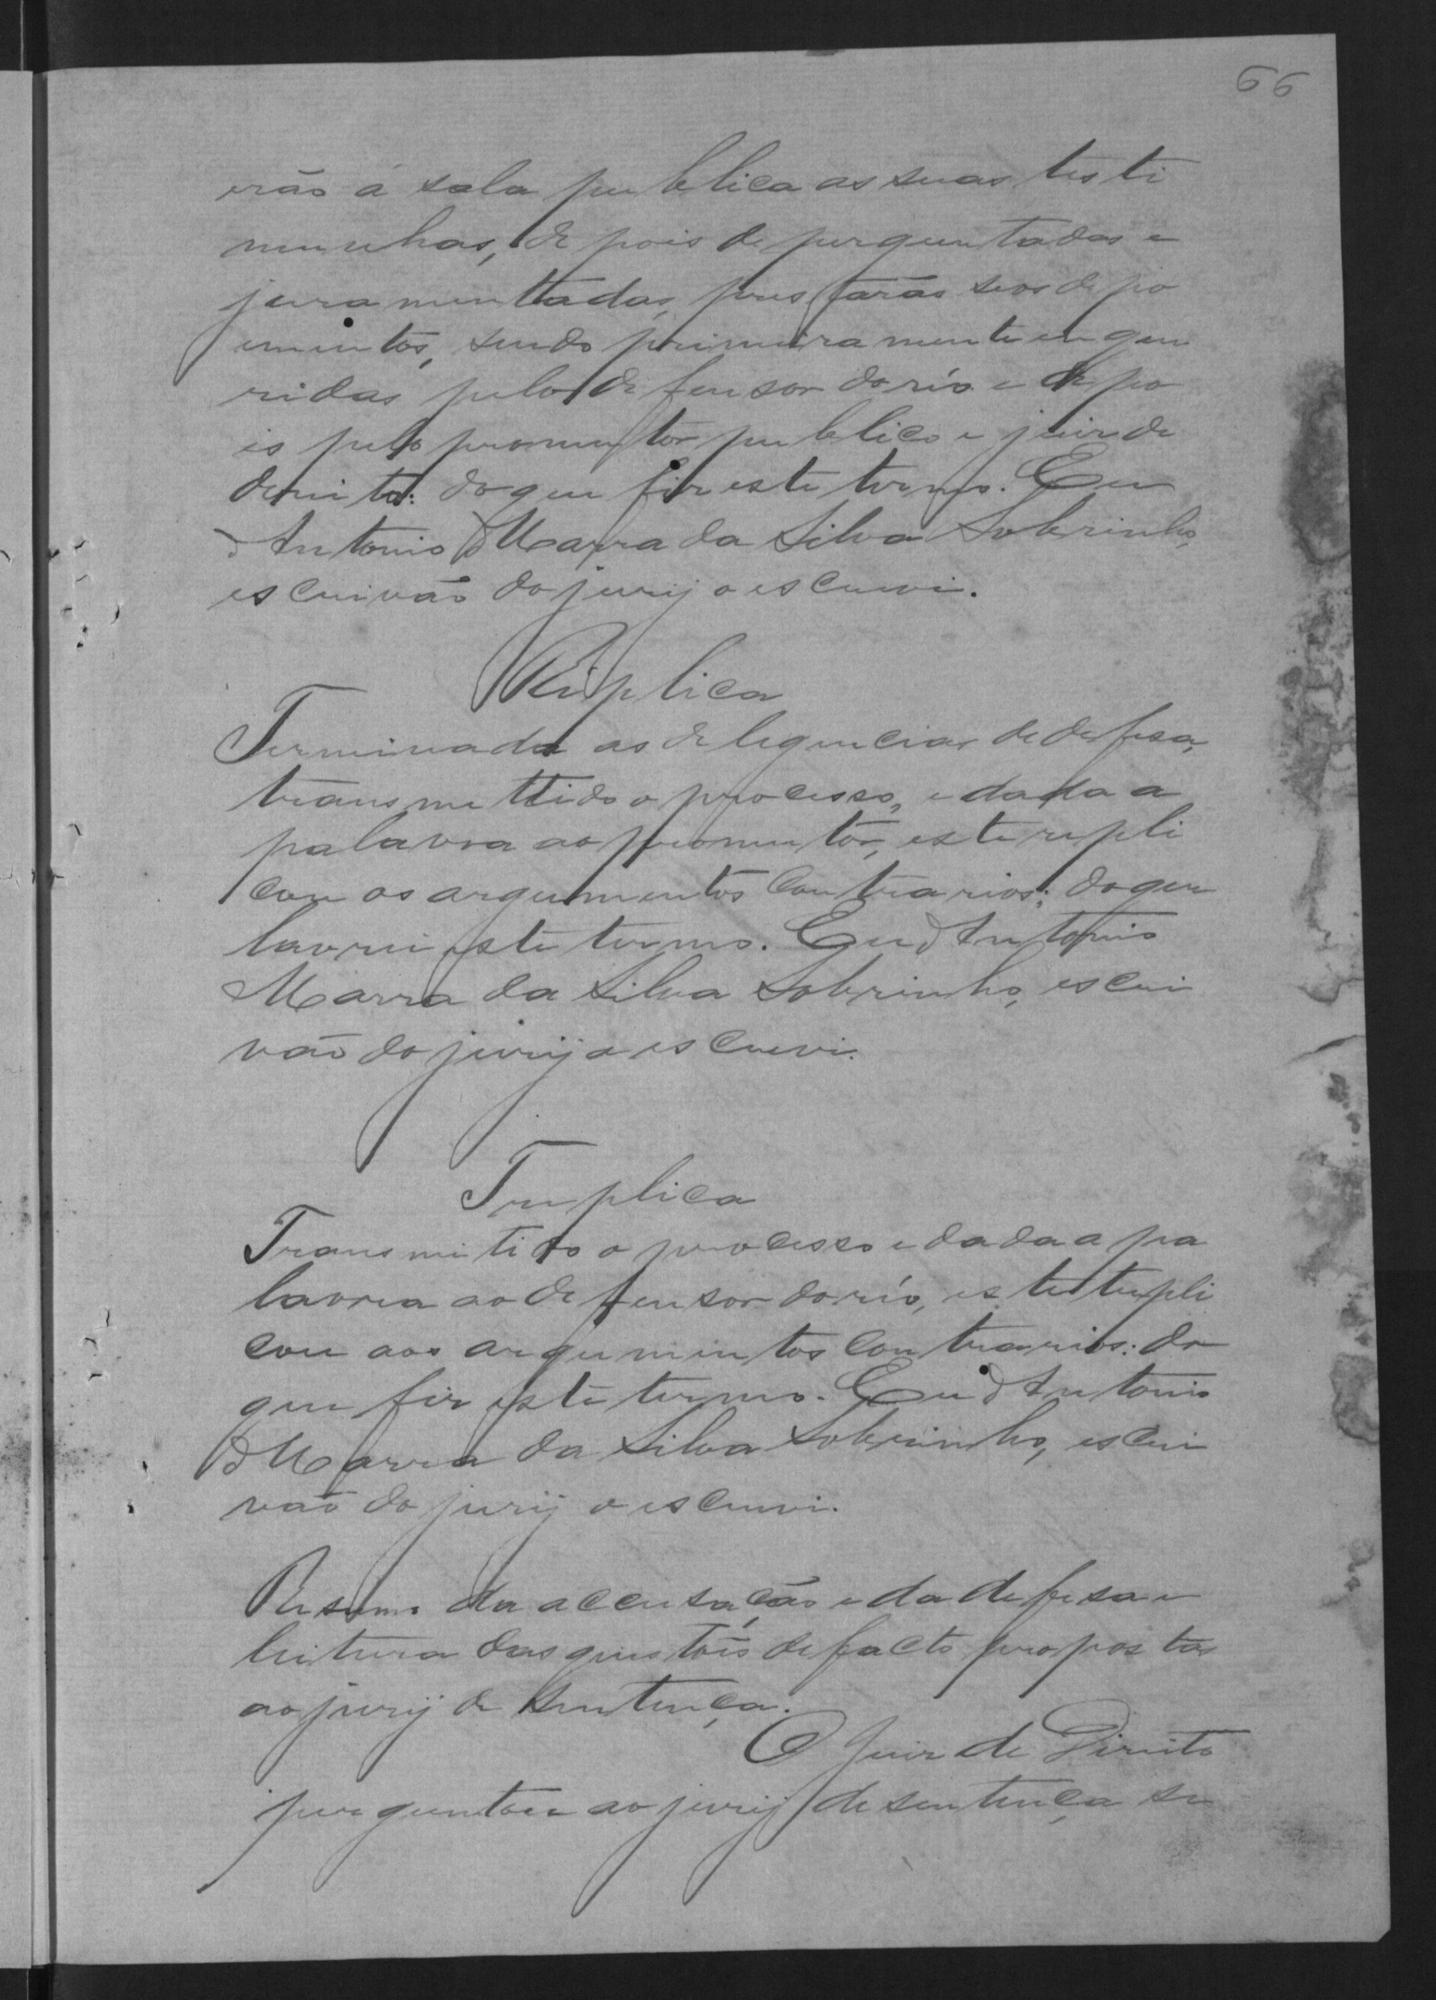 66
erão á sala publica as suas teste
munhas, depois de perguntadas e
juramenttadas, prestarão seos depo
imentos, sendo primeiramente inque
ridas pelo defensor do réo e depo
is pelo promutor publico e juir de
dereito: do que fir este termo. Eu
Antonio Marra da Silva Sobrinho,
escrivão do jurij o escrevi.
Réplica
Terminada as deligencias de defesa,
transmettido o processo, e dada a
palavra ao promutor, este repli
cou os argumentos contrarios: do que
lavrei este termo. Eu Antonio
Marra da Silva Sobrinho, escri
vão do jurij o escrevi.
Treplica
Transmitido o processo e dada a pa
lavra ao defensor do réo, este trepli
cou aos argumentos contrarios: do
que fir este termo. Eu Antonio
Marra da Silva Sobrinho, escri
vão do jurij o escrevi.
Resumo da accusação e da defesa e
leitura das questões de facto propostas
ao jurij de sentença.
O Juir de Direito
perguntou ao jurij de sentença se